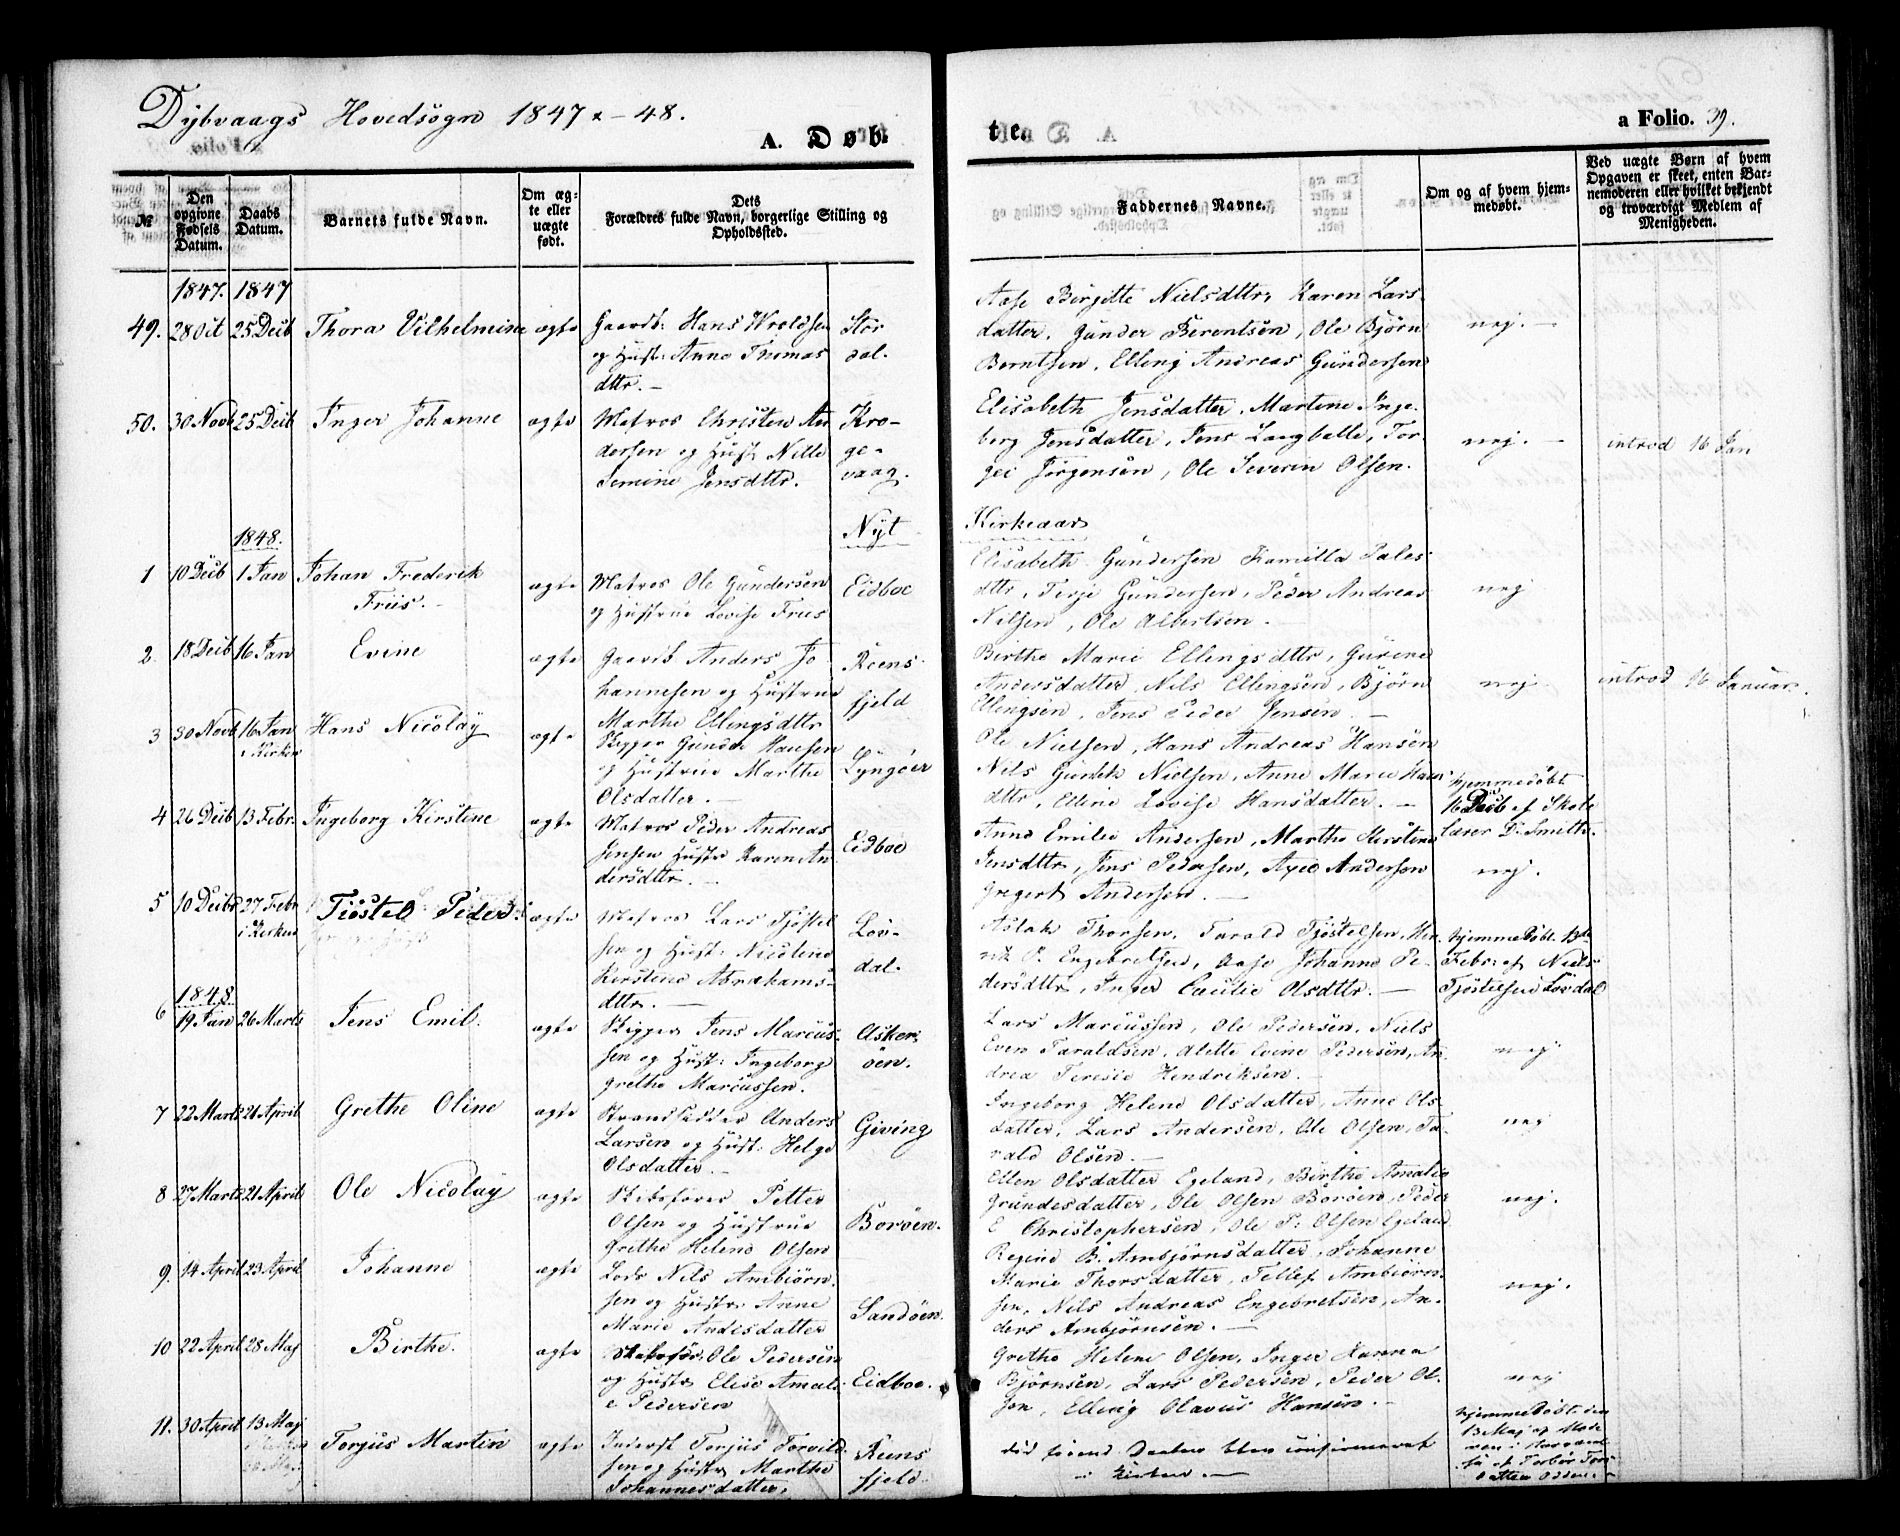 Dybvaags Hovedsogn 1847 - 48.
A. Døb
te.
a Folio. 39.
№
Den opgivne Fødsels Datum.
Daabs Datum.
Barnets fulde Navn.
Om ægte eller uægte født.
Dets
Forældres fulde Navn, borgerlige Stilling og Opholdssted.
Faddernes Navne.
Om og af hvem hjemmedøbt.
Ved uægte Børn af hvem Opgaven er skeet, enten Barnemoderen eller hvilket bekjendt og troværdigt Medlem af Menigheden.
1847. 1847
49. 28 Oct 25 Decb Thora Vilhelmine ægte
Gaardb: Hans Wroldsen
og Hust: Anne Thomas
dttr. -
Stor
dal.
Aase Birgitte Nielsdttr, Karen Lars
datter, Gunder Berentsen, Ole Bjørn
Berntsen, Elling Andreas Gundersen
nej. -
50. 30 Novb 25 Decb Inger Johanne ægte
Matros Christen An
dersen og Hust: Nille
Semine Jensdttr.
Kro-
ge-
vaag.
Elisabeth Jensdatter, Martine Inge
borg Jensdatter, Jens Langballe, Tor
gei Jørgensen, Ole Severin Olsen.
nej. -
introd 16 Jan
1848.
Nyt Kirkeaar
1 10 Decb 1 Jan Johan Frederik
Friis. -
ægte
Matros Ole Gundersen
og Hustrue Lovise Friis
Eidboe
Elisabeth Gundersen Kamilla Pales
dttr, Terje Gundersen, Peder Andreas
Nilsen, Ole Albertsen. -
nej
2. 18 Decb 16 Jan Evine ægte
Gaardb Anders Jo
hannesen og Hustrue
Marthe Ellingsdttr
Reens
fjeld
Birthe Marie Ellingsdttr, Gurine
Andersdatter, Nils Ellingsen, Bjørn
Ellingsen, Jens Peder Jensen. -
nej.
introd 16 Januar.
3 30 Novb 16 Jan
i Kirken
Hans Nicolay ægte
Skipper Hansen
og Hustrue Marthe
Olsdatter. -
Lyngøer
Ole Nielsen, Hans Andreas Hansen
Nils Nielsen, Anne Marie Hans
dttr, Elline Lovise Hansdatter. -
hjemmedøbt
16 Decb af Skole
lærer D. Smith.
4 26 Decb 13 Febr. Ingeborg Kirstine ægte
Matros Peder Andreas
Jensen Hustr Karen An
dersdttr. -
Eidboe
Anne Emilie Andersen, Marthe Kirstine
Jensdttr, Jens Pedersen, Axel Andersen
Gregert Andersen. -
nej.
5 10 Decbr 27 Febr
i Kirken
Tjøstel Peder ægte
Matros Lars Tjøstel
sen og Hust: Nicoline
Kirstine Abrahams-
dttr. -
Løv-
dal.
Aslak Thorsen, Tarald Tjøstelsen, Hen
rik P. Engebretsen, Aase Johanne Pe-
dersdttr, Inger Cecilie Olsdttr. -
hjemmedøbt 13de
Febr: af Niels
Tjøstelsen Løvdal
1848.
6 19 Jan 26 Marts Jens Emil. ægte
Skipper Jens Marcus-
sen og Hust: Ingeborg
Grethe Marcussen.
Asker
øen.
Lars Marcussen, Ole Pedersen, Niels
Even Taraldsen, Alette Evine Pedersen, An
drea Teresie Hendriksen. -
nej
7 22 Marts 21 April Grethe Oline ægte
Strandsidder Anders
Larsen og Hust: Helge
Olsdatter. -
Giving
Ingeborg Helene Olsdatter, Anne Ols-
datter, Lars Andersen, Ole Olsen, Ta-
rald Olsen. -
nej
8 27 Marts 21 April Ole Nicolay ægte
Skibsfører Petter
Olsen og Hustrue
Grethe Helene Olsen
Borøen.
Ellen Olsdatter Egeland, Birthe Amalie
Grundesdatter, Ole Olsen Borøen, Peder
E Christophersen, Ole P. Olsen Egeland
nej.
9. 14 April 23 April Johanne ægte
Lods Nils Ambiørn-
sen og Hustr: Anne
Marie Andesdatter
Sandøen.
Regine B. Ambjørnsdatter, Johanne
Marie Thorsdatter, Tellef Ambiørn-
sen, Nils Andreas Engebretsen, An-
ders Ambjørnsen. -
nej.
10 22 April 28 Maj Birthe. ægte
Skibsfør. Ole Pedersen
og Hustr Elise Amali-
e Pedersen
Eidboe.
Grethe Helene Olsen, Inger Hanna
Bjørnsen, Lars Pedersen, Peder Ol-
sen, Elling Olavus Hansen. -
nej
11. 30 April 13 Maj Torjus Martin ægte
Inderst Torjus Torvild
sen og Hustr Marthe
Johannesdatter,
Reens
fjeld.
Daaben blev confirmeret
i Kirken. -
hjemmedøbt den
13 Maj af